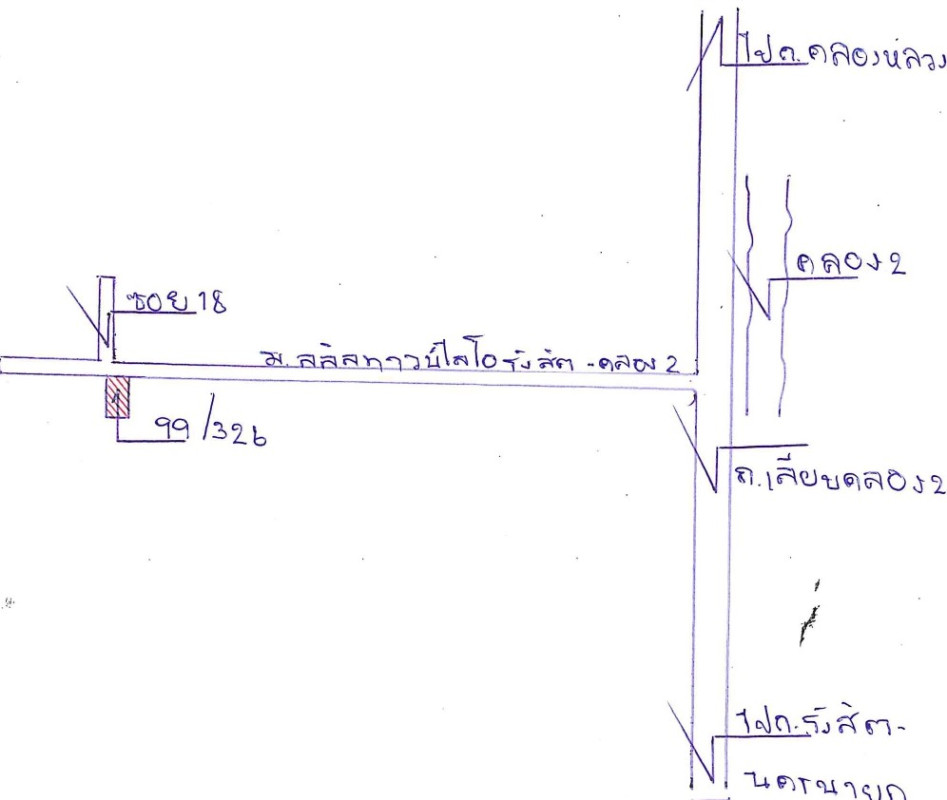 ไปถ.คลองหลวง
คลอง2
ซอย 18
ม.ลลิลทาวน์ไลโอ รังสิต - คลอง 2
99/326
ถ.เลียบคลอง2
ไปถ.รังสิต-
นครนายก